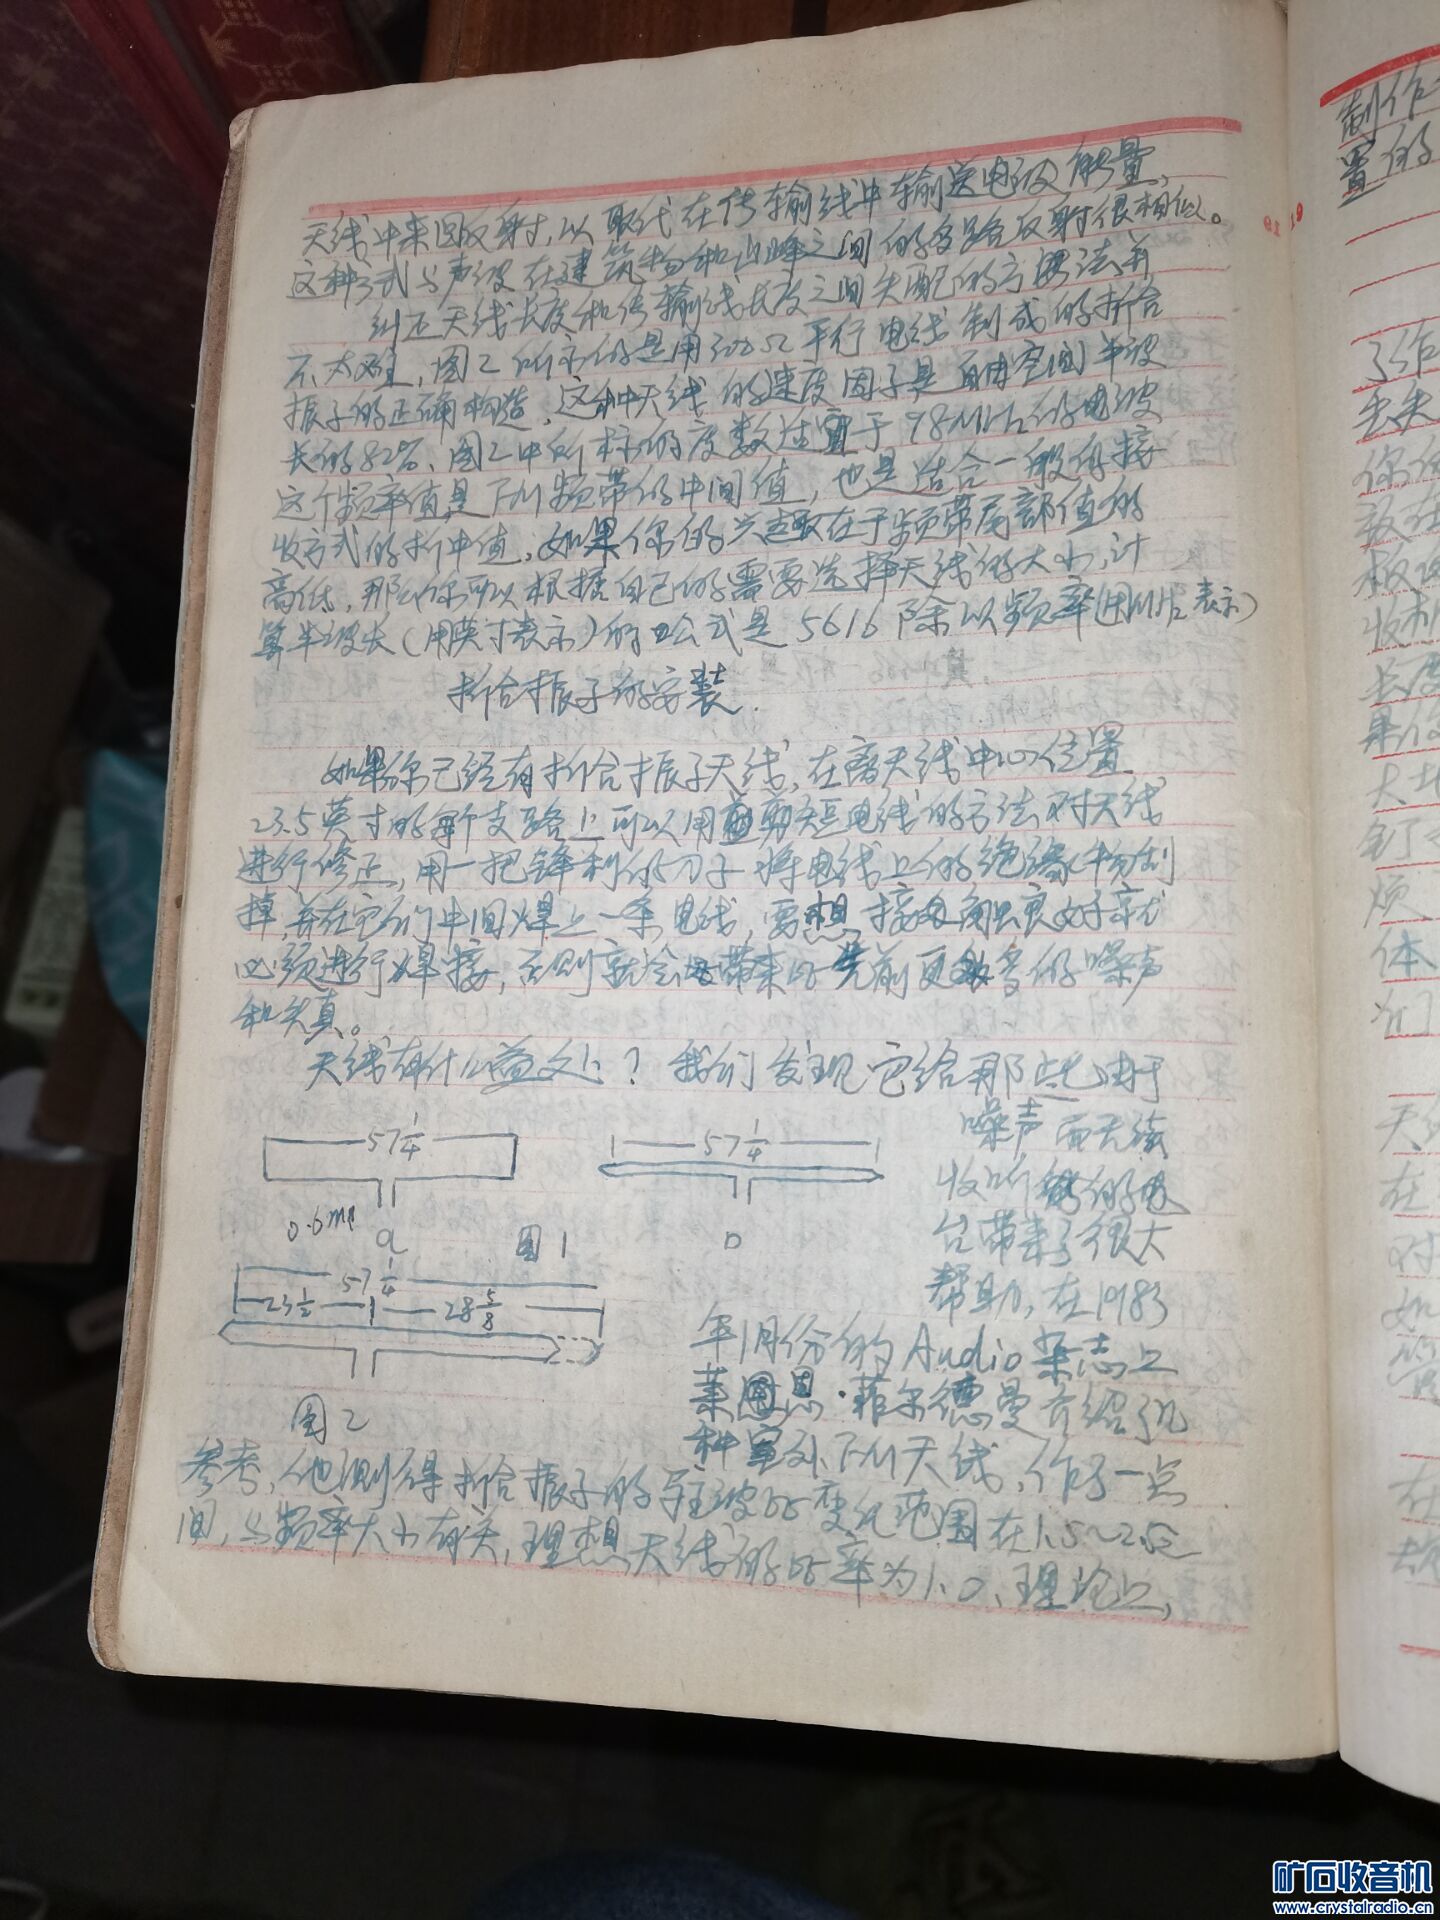 天线中来回反射,以取代在传输线中输送电波能量,
这种方式与声波在建筑物和山峰之间的多路反射很相似。
纠正天线长度和传输线长度之间失配的方法并
不太难,图2所示的是用300Ω平行电线制成的折合
振子的正确构造,这种天线的速度因子是自由空间半波
长的82%、图2中所标的度数适宜于98MHz的电波
这个频率值是FM频带的中间值,也是适合一般的接
收方式的折中值,如果你的兴趣在于频带尾部值的
高低,那么你可以根据自己的需要选择天线的大小,计
算半波长(用英寸表示)的公式是5616除以频率(用MHz表示)
折合振子的安装.
如果你已经有折合振子天线,在离天线中心位置
23.5英寸的每个支路上可以用剪短电线的方法对天线
进行修正,用一把锋利的刀子将电线上的绝缘物刮
掉并在它们中间焊上一条电线,要想接触良好就
必须进行焊接,否则就会带来比先前更多的噪声
和失真。
天线有什么益处?我们发现它给那些由于
噪声而无法
收听的电
台带来了很大
帮助,在1983
年1月份的Audio杂志上
莱恩·菲尔德曼介绍了几
种室外FM天线,作了一点
参考,他测得折合振子的驻波比变化范围在1.5~2.5之
间,与频率大小有关,理想天线的比率为1.0、理论上,
57 1/4
57 1/4
a
图1
57 1/4
23 1/2
28 5/8
图2
制作
置的
了作
丢失
你
板
收机
长度
果你
大
钉
烦
体
天线
在
对
如
在
矿石收音机
www.crystalradio.cn